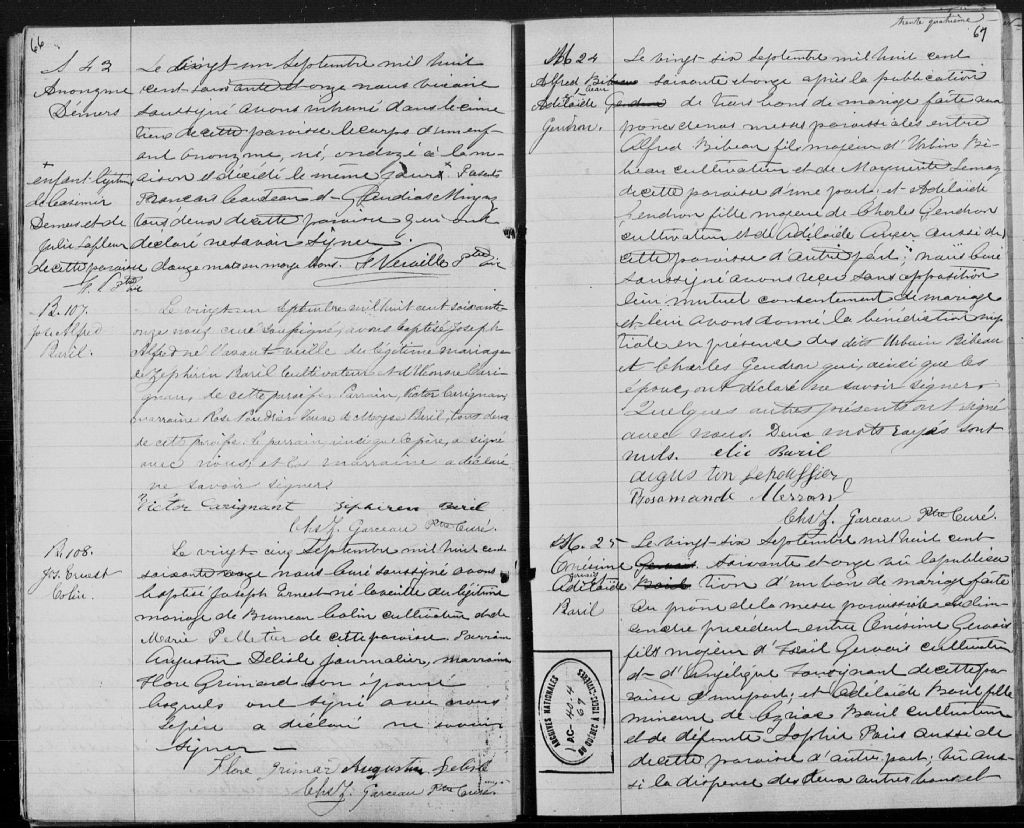 66
S 43
Anonyme
Démers
+
enfant légitime
de Casimir
Demers et de
Julie Lafleur
de cette paroisse
Le vingt un Septembre mil huit
cent soixante et onze nous vicaire
soussigné avons inhumé dans le cime
tière de cette paroisse le corps d'un enf
ant anonyme, né, ondoyé à la m
aison et décédé le même jour + Présents
François Houdeau et
tous deux de cette paroisse qui ont
déclaré ne savoir signer.
douze mots en marge bons. Ptre Vic
B. 107.
Jos. Alfred
Baril.
Le vingt un Septembre mil huit cent soixante
onze nous curé soussigné, avons baptisé Joseph
Alfred né l'avant-veille du légitime mariage
de Zéphirin Baril Cultivateur et d'Eléonore Cari-
gnan, de cette paroisse Parrain, Victor Carignan,
marraine Rose Poudrier épouse de Moyse Baril, tous deux
de cette paroisse. le parrain, ainsi que le père, a signé
avec nous, et la marraine a déclaré
ne savoir signer
Victor Carignant Zephiren Baril
Chs Z. Garceau Ptre Curé.
B. 108.
Jos. Ernest
Colin.
Le vingt cinq Septembre mil huit cent
soixante onze nous Curé soussigné avons
baptisé Joseph Ernest né la veille du légitime
mariage de Bruneau Colin cultivateur et de
Marie Pelletier de cette paroisse Parrain
Augustin Delisle journalier, marraine
Flore Grimard son épouse
lesquels ont signé avec nous
Le père a déclaré ne savoir
signer —
Flore Grimar Augustin Delisle
Chs Z. Garceau Ptre Curé
trente quatrième
67
M 24
Alfred Bibeau
Adélaïde Gendron
Gendron.
Le vingt six Septembre mil huit cent
soixante et onze après la publication
de trois bans de mariage faite aux
prônes de nos messes paroissiales entre
Alfred Bibeau fils majeur d'Urbin Bi-
beau cultivateur et de Marguerite Lemay
de cette paroisse d'une part; et Adélaïde
Gendron fille majeure de Charles Gendron
cultivateur et de Adélaïde Auger aussi de
cette paroisse d'autre part; nous Curé
soussigné avons reçu sans opposition
leur mutuel consentement de mariage
et leur avons donné la bénédiction nup
tiale en présence des dits Urbain Bibeau
et Charles Gendron qui, ainsi que les
époux, ont déclaré ne savoir signer.
Quelques autres présents ont signé
avec nous. Deux mots rayés sont
nuls. elie Baril
augustin
Rosamande
Chs Z. Garceau Ptre Curé.
M. 25
Onésime Gervais
Gervais
Adélaïde Baril
Baril
Le vingt-six Septembre mil huit cent
soixante et onze vû la publica
tion d'un ban de mariage faite
au prône de la messe paroissiale du dim
anche précédent entre Onésime Gervais
fils majeur d'Isaïl Gervais cultivateur
et d'Angélique de cette pa-
roisse d'une part; et Adélaïde Baril fille
mineure de Cyriac Baril cultivateur
et de défunte Sophie Paris aussi de
de cette paroisse d'autre part; vû aus-
si la dispense des deux autres bans et
ARCHIVES NATIONALES
DU QUÉBEC À